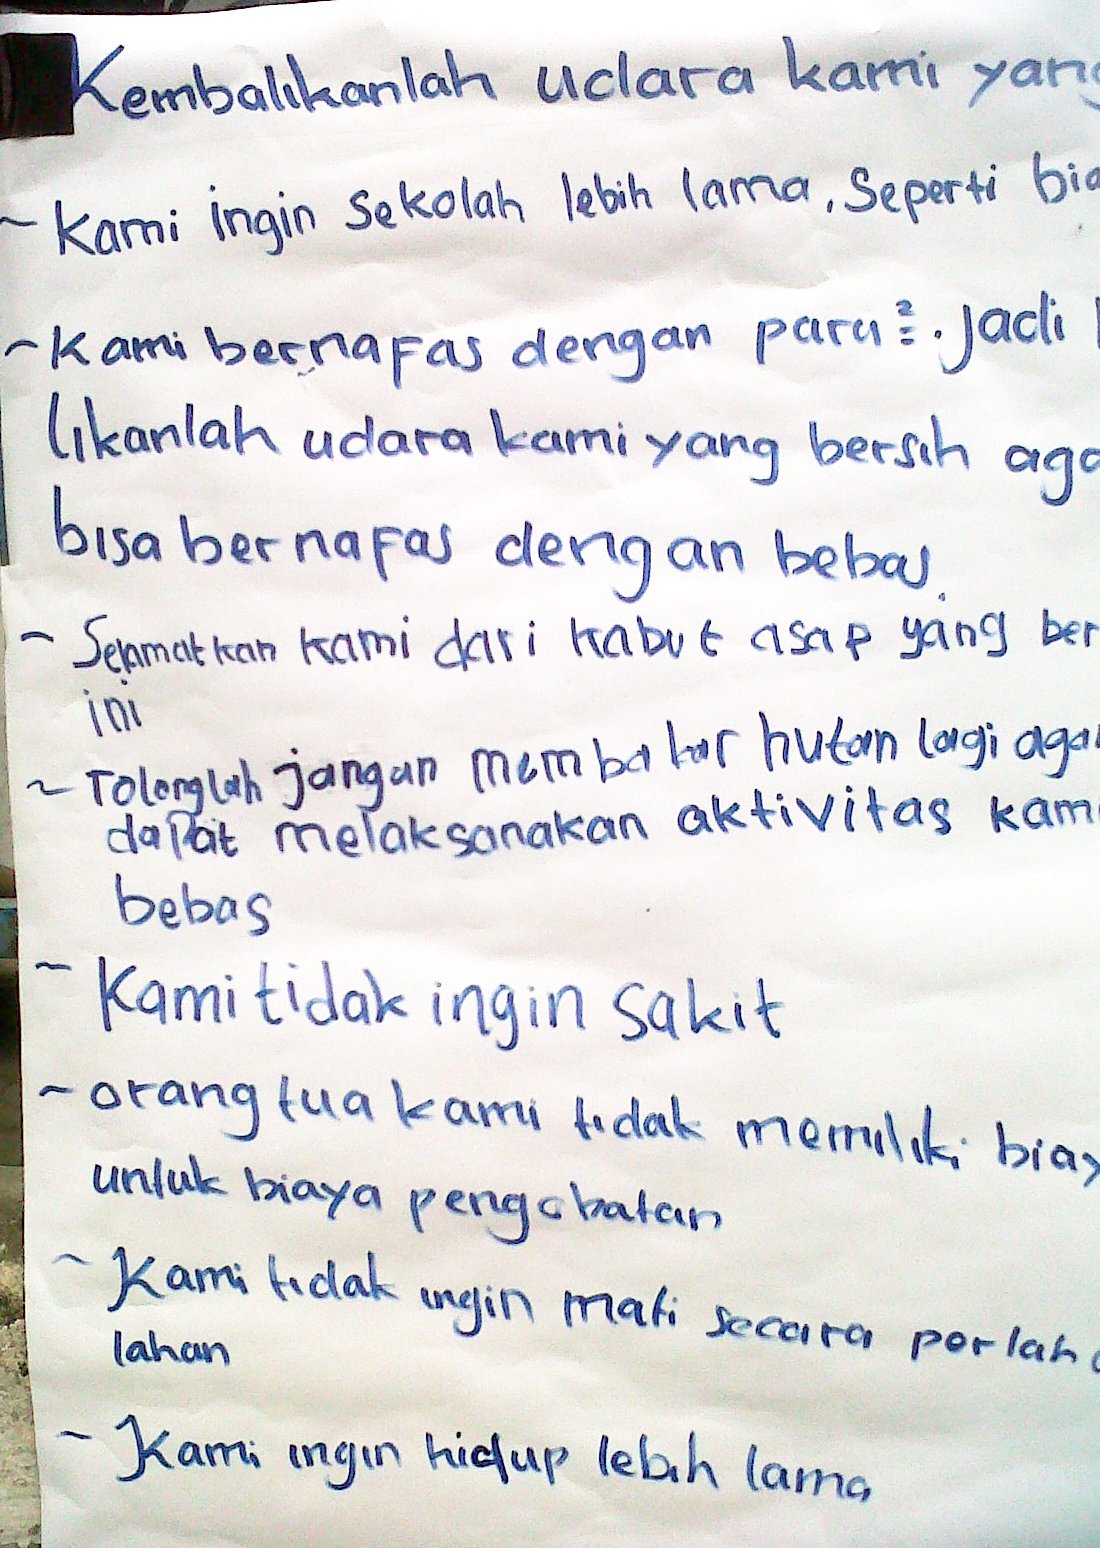 Kembalikanlah udara kami yang
~ Kami ingin sekolah lebih lama, seperti bia
~ Kami bernafas dengan paru². Jadi
likanlah udara kami yang bersih aga
bisa bernafas dengan bebas.
~ Selamatkan kami dari kabut asap yang ber
ini
~ Tolonglah jangan membakar hutan lagi agar
dapat melaksanakan aktivitas kam
bebas
~ Kami tidak ingin sakit
~ orang tua kami tidak memiliki biay
untuk biaya pengobatan
~ Kami tidak ingin mati secara perlaha
lahan
~ Kami ingin hidup lebih lama